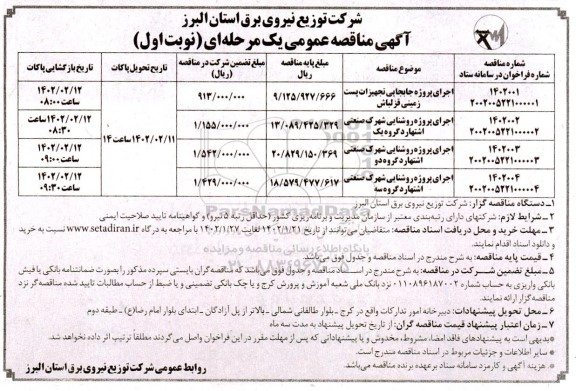 شرکت توزیع نیروی برق استان البرز
آگهی مناقصه عمومی یک مرحله‌ای (نوبت اول)
شماره مناقصه شماره فراخوان در سامانه ستاد | موضوع مناقصه | مبلغ پایه مناقصه ریال | مبلغ تضمین شرکت در مناقصه (ریال) | تاریخ تحویل پاکات | تاریخ بازگشایی پاکات
۱۴۰۲۰۰۱ ۲۰۰۲۰۰۵۲۲۱۰۰۰۰۰۱ | اجرای پروژه جابجایی تجهیزات پست زمینی قزلباش | ۹/۱۲۵/۹۲۷/۶۶۶ | ۹۱۳/۰۰۰/۰۰۰ | ۱۴۰۲/۰۲/۱۱ ساعت ۱۴ | ۱۴۰۲/۰۲/۱۲ ساعت ۰۸:۰۰
۱۴۰۲۰۰۲ ۲۰۰۲۰۰۵۲۲۱۰۰۰۰۰۲ | اجرای پروژه روشنایی شهرک صنعتی اشتهارد گروه یک | ۱۳/۰۸۹/۴۲۵/۳۲۹ | ۱/۱۵۵/۰۰۰/۰۰۰ | ۱۴۰۲/۰۲/۱۲ ساعت ۰۸:۳۰
۱۴۰۲۰۰۳ ۲۰۰۲۰۰۵۲۲۱۰۰۰۰۰۳ | اجرای پروژه روشنایی شهرک صنعتی اشتهارد گروه دو | ۲۰/۸۲۹/۱۵۰/۳۶۹ | ۱/۵۴۲/۰۰۰/۰۰۰ | ۱۴۰۲/۰۲/۱۲ ساعت ۰۹:۰۰
۱۴۰۲۰۰۴ ۲۰۰۲۰۰۵۲۲۱۰۰۰۰۰۴ | اجرای پروژه روشنایی شهرک صنعتی اشتهارد گروه سه | ۱۸/۵۷۹/۴۷۷/۶۱۷ | ۱/۴۲۹/۰۰۰/۰۰۰ | ۱۴۰۲/۰۲/۱۲ ساعت ۰۹:۳۰
۱-دستگاه مناقصه گزار: شرکت توزیع نیروی برق استان البرز
۲-شرایط لازم: شرکتهای دارای رتبه‌بندی معتبر از سازمان مدیریت و برنامه‌ریزی کشور (حداقل رتبه ۵ نیرو) و گواهینامه تایید صلاحیت ایمنی
۳-مهلت خرید و محل دریافت اسناد مناقصه: متقاضیان می‌توانند از تاریخ ۱۴۰۲/۱/۲۱ لغایت ۱۴۰۲/۱/۲۷ با مراجعه به درگاه www.setadiran.ir نسبت به خرید و دانلود اسناد اقدام نمایند.
۴-قیمت پایه مناقصه: به شرح مندرج در اسناد مناقصه و جدول فوق می‌باشد
۵-مبلغ تضمین شرکت در مناقصه: به شرح مندرج در اسناد مناقصه و جدول فوق می‌باشد که مناقصه گران بایستی سپرده مذکور را بصورت ضمانتنامه بانکی یا فیش بانکی واریزی به حساب شماره ۰۱۱۰۸۹۶۱۸۷۰۰۲ نزد بانک ملی شعبه آموزش و پرورش کرج و یا چک بانکی تضمینی و یا ضبط از حساب مطالبات تایید شده مناقصه‌گر نزد مناقصه گزار ارائه نمایند.
۶-محل تحویل پیشنهادات: دبیرخانه امور تدارکات واقع در کرج - بلوار طالقانی شمالی - بالاتر از پل آزادگان - ابتدای بلوار امام رضا(ع) - طبقه دوم
۷-زمان اعتبار پیشنهاد قیمت مناقصه گران: از تاریخ تحویل پیشنهاد به مدت سه ماه
• بدیهی است به پیشنهادهای فاقد امضا، مشروط، مخدوش و یا پیشنهاداتی که پس از مهلت مقرر در این فراخوان واصل می‌گردند مطلقاً ترتیب اثر داده نخواهد شد.
• سایر اطلاعات و جزئیات مربوط در اسناد مناقصه مندرج است.
• هزینه آگهی و کارمزد سامانه ستاد برعهده برنده مناقصه می‌باشد.
روابط عمومی شرکت توزیع نیروی برق استان البرز